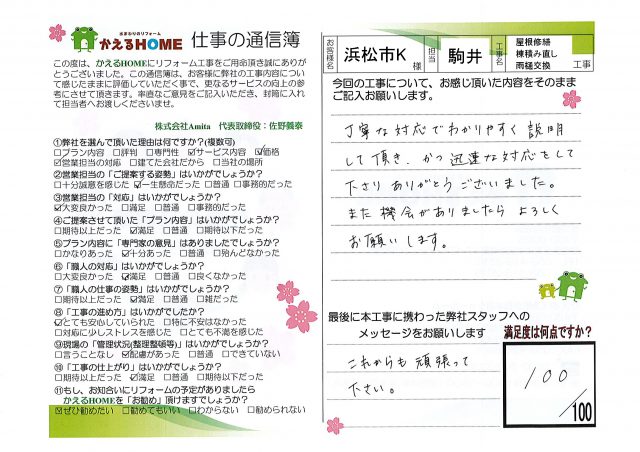 水まわりのリフォーム
かえるHOME 仕事の通信簿
この度は、かえるHOMEにリフォーム工事をご用命頂き誠にありが
とうございました。この通信簿は、お客様に弊社の工事内容につい
て感じたままに評価していただく事で、更なるサービスの向上の参
考にさせて頂きます。率直なご意見をご記入いただき、封筒に入れ
て担当者へお渡しくださいませ。
株式会社Amita 代表取締役:佐野義泰
①弊社を選んで頂いた理由は何ですか?(複数可)
□プラン内容 □評判 □専門性 ☑サービス内容 ☑価格
☑営業担当の対応 □建てた会社だから □当社の場所
②営業担当の「ご提案する姿勢」はいかがでしょうか?
□十分誠意を感じた ☑一生懸命だった □普通 □事務的だった
③営業担当の「対応」はいかがでしょうか?
☑大変良かった □満足 □普通 □事務的だった
④ご提案させて頂いた「プラン内容」はいかがでしょうか?
□期待以上だった ☑満足 □普通 □期待以下だった
⑤プラン内容に「専門家の意見」はありましたでしょうか?
□かなりあった ☑十分あった □普通 □殆んどなかった
⑥「職人の対応」はいかがでしょうか?
□大変良かった ☑満足 □普通 □良くなかった
⑦「職人の仕事の姿勢」はいかがでしょうか?
□期待以上だった ☑満足 □普通 □雑だった
⑧「工事の進め方」はいかがでしたか?
☑とても安心していられた □特に不安はなかった
□対応に少しストレスを感じた □とても不満を感じた
⑨現場の「管理状況(整理整頓等)」はいかがでしょうか?
□言うことなし ☑配慮があった □普通 □できていない
⑩「工事の仕上がり」はいかがでしょうか?
□期待以上だった ☑満足 □普通 □期待以下だった
⑪もし、お知合いにリフォームの予定がありましたら
かえるHOMEを「お勧め」頂けますでしょうか?
☑ぜひ勧めたい □勧めてもいい □わからない □勧められない
お客様名 浜松市K 様 担当 駒井 工事名 屋根修繕
棟積み直し
雨樋交換 工事
今回の工事について、お感じ頂いた内容をそのまま
ご記入お願いします。
丁寧な対応でわかりやすく説明
して頂き、かつ迅速な対応をして
下さりありがとうございました。
また機会がありましたらよろしく
お願いします。
最後に本工事に携わった弊社スタッフへの
メッセージをお願いします
これからも頑張って
下さい。
満足度は何点ですか?
100
/100